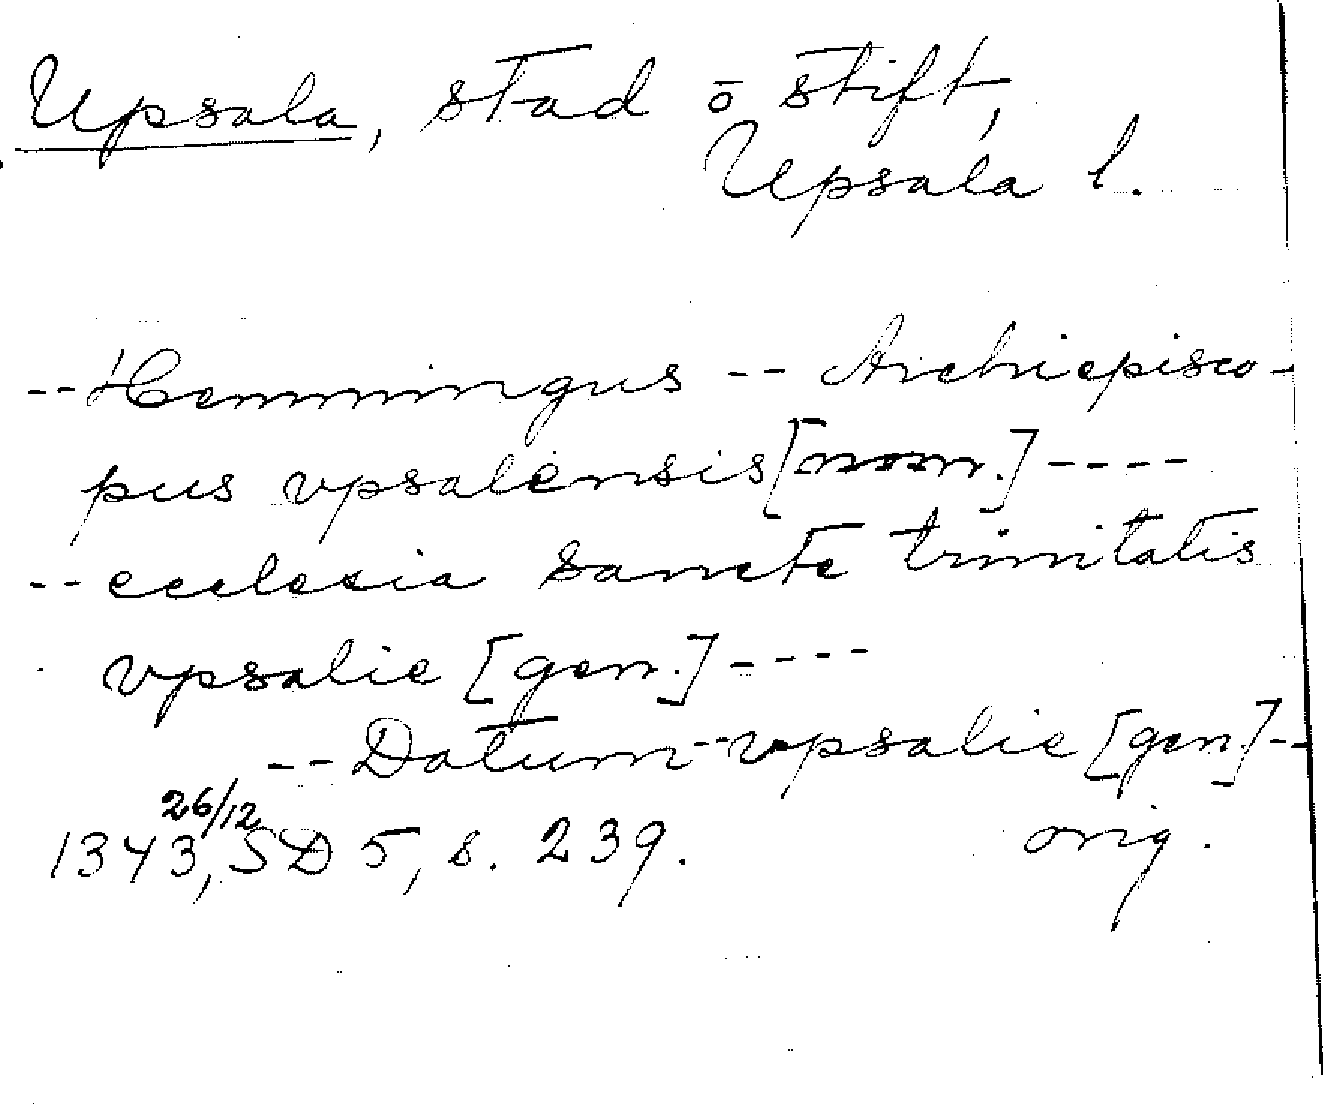 Upsala, stad ō stift,
Upsala l.
--Hemmingus -- Archiepisco-
pus vpsalensis [nom.] ----
--ecclesia sancte trinitatis
vpsalie [gen.] ----
--Datum--vpsalie [gen.]--
26/12
1343, SD 5, s. 239. orig.